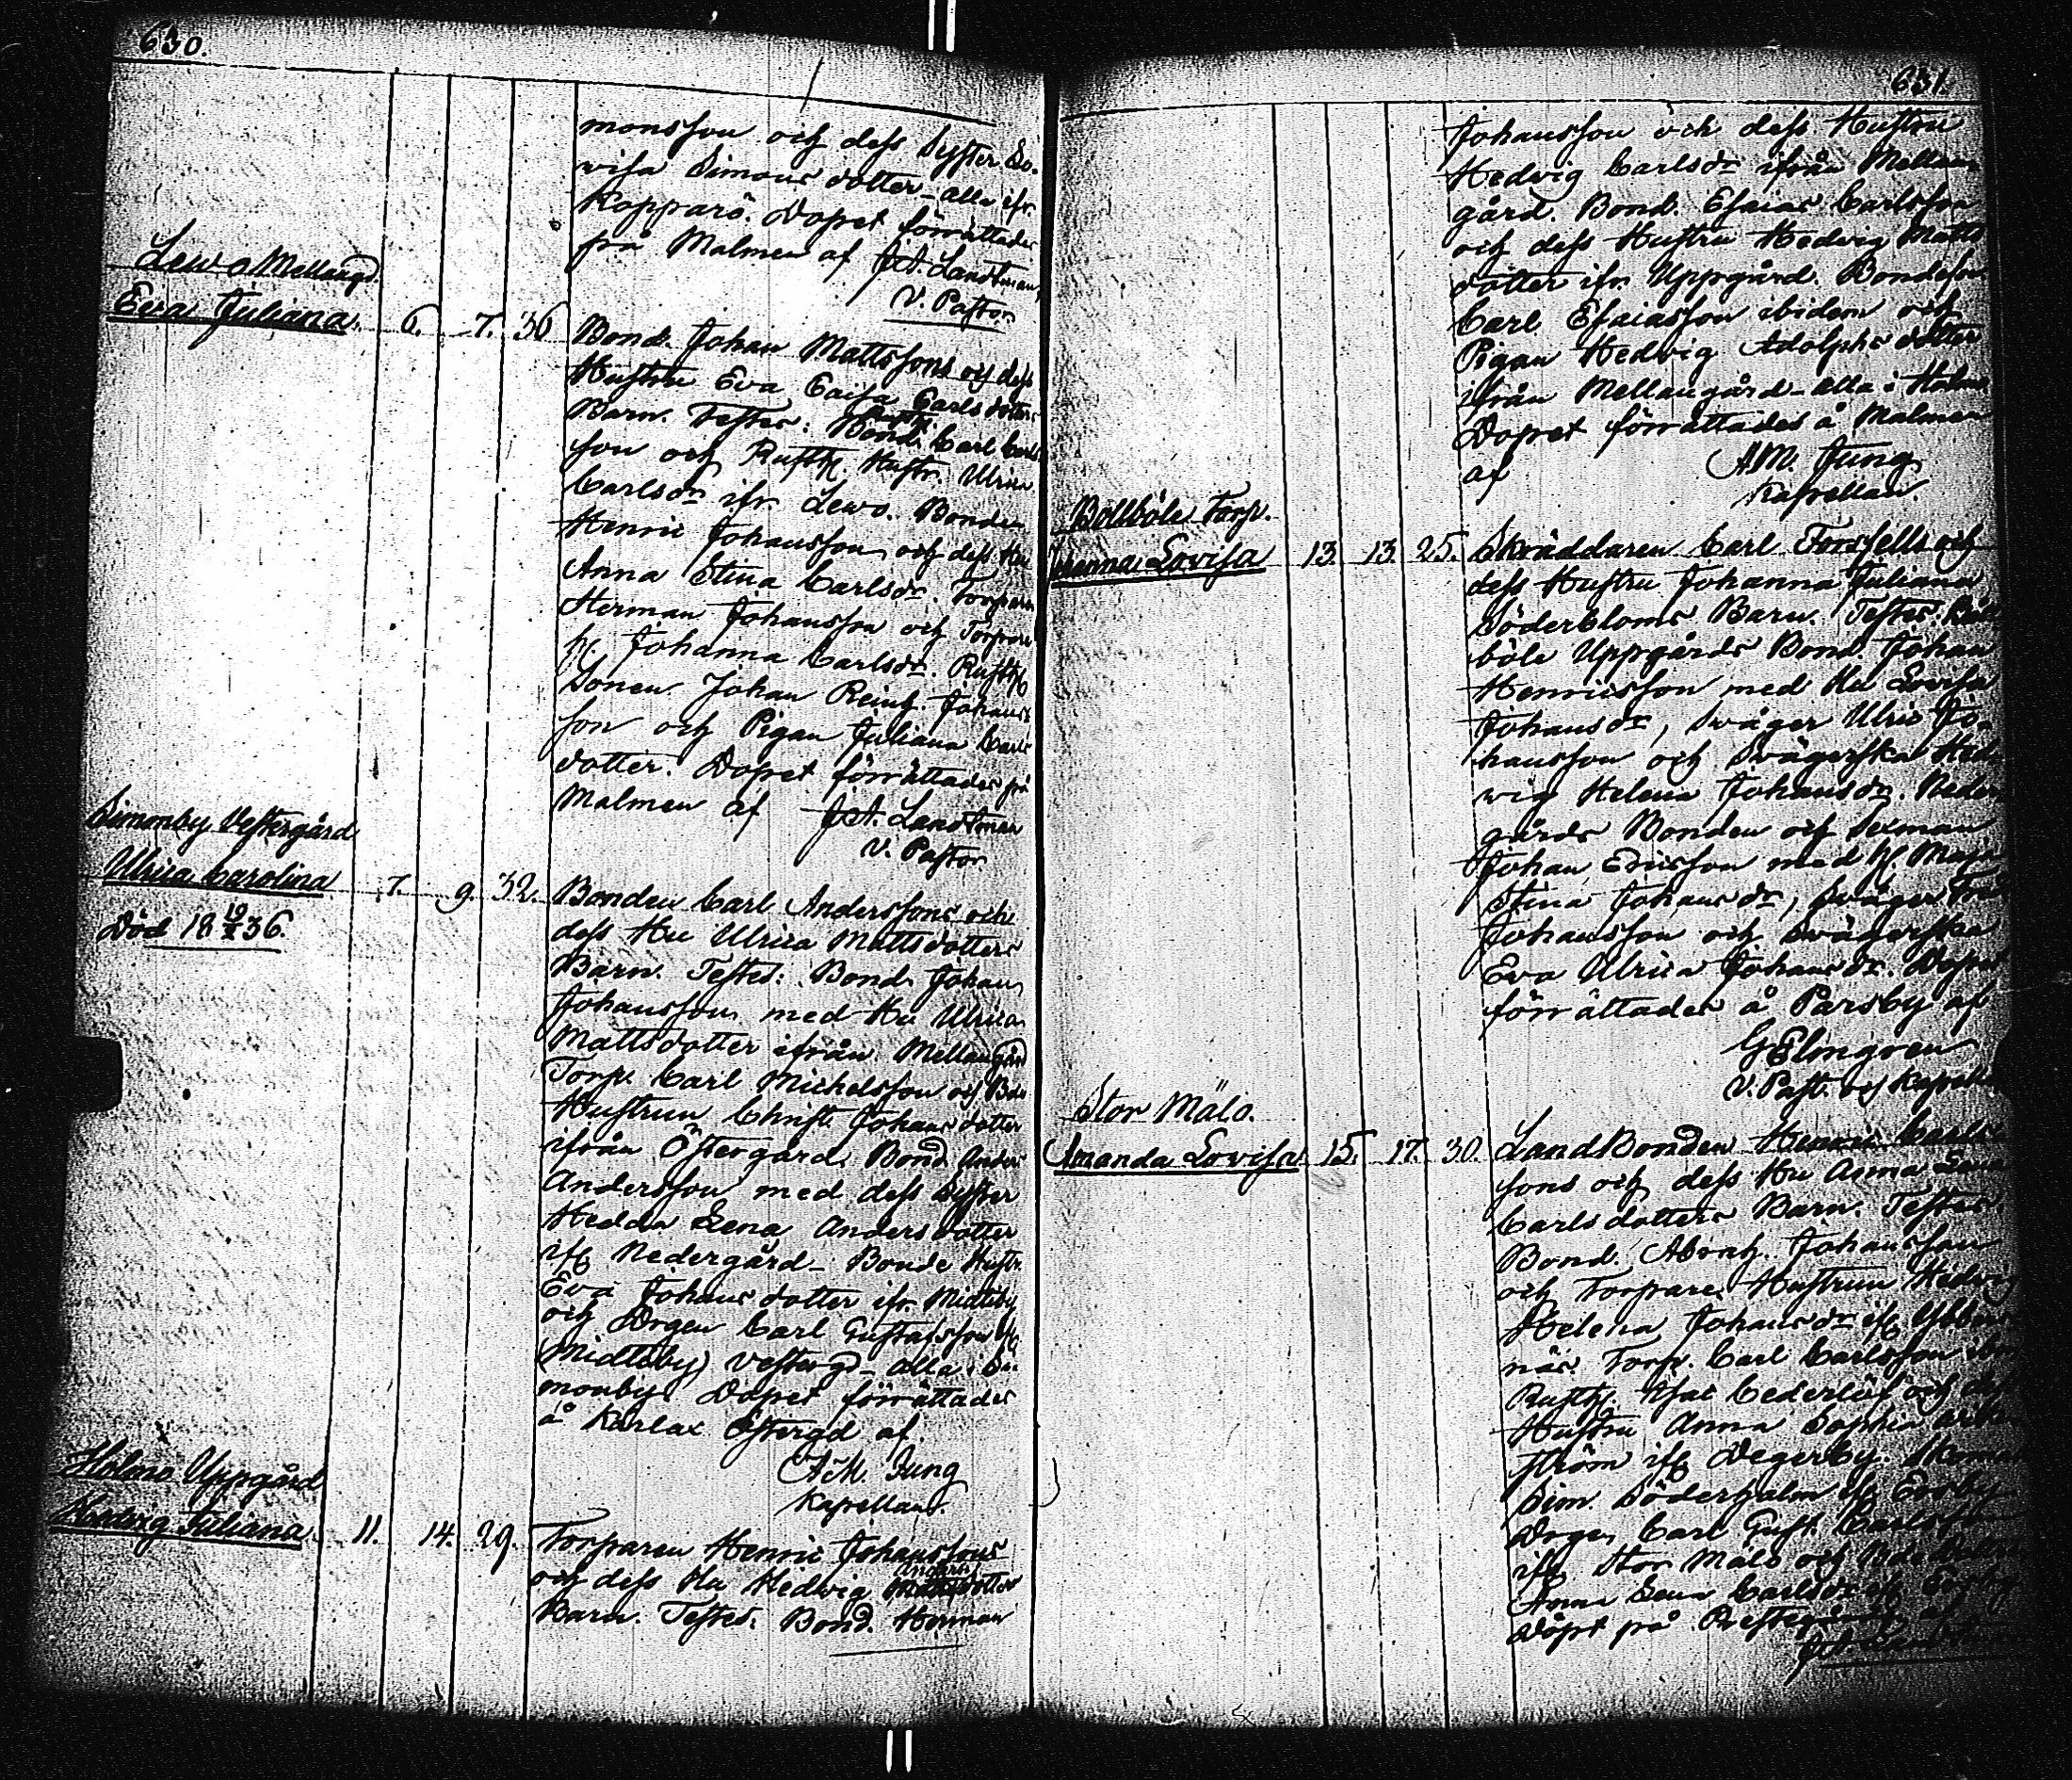 630.
monsson och dess Syster Lo-
visa Simons dotter - alla ifr.
Kopparö. Dopet förrättades
på Malmen af J. A. Landtman,
V. Pastor.
Lewo Mellangd.
Eva Juliana. 6. 7. 36 Bond. Johan Mattssons och dess
Hustru Eva Caisa Carls dotters
Barn. Testes: Bond. Carl Carls
son och Rusth. Hustr. Ulrica
Carlsdr ifr. Lewo. Bonden
Henric Johansson och dess Hu
Anna Stina Carlsdr. Torparn
Herman Johansson och Torpare
h. Johanna Carlsdr. Rusth
Sonen Johan Reinh. Johans
son och Pigan Juliana Carls
dotter. Dopet förrättades på
Malmen af J. A. Landtman
V. Pastor.
Simonby Vestergård
Ulrica Carolina 7. 9. 32. Bonden Carl Anderssons och
Död 18 19/X 36.
dess Hu Ulrica Mattsdotters
Barn. Testes: Bond. Johan
Johansson med Hu Ulrica
Mattsdotter ifrån Mellangård
Torp. Carl Michelsson och Bde
Hustrun Christ. Johans dotter
ifrån Östergård Bond. Anders
Andersson med dess Syster
Hedda Lena Anders dotter
ifr Nedergård - Bonde Hustr.
Eva Johans dotter ifr. Midtby
och Drgen Carl Gustafsson ifr
(Midtby) Vestergd - alla i Si-
monby. Dopet förrättades
å Karlax Östergd af.
A. M. Jung
Kapellan.
Holmo Uppgård
Hedvig Juliana. 11. 14. 29. Torparen Henric Johanssons
och dess Hu Hedvig Anders dotters
Barn. Testes. Bond. Herman
631.
Johansson och dess Hustru
Hedvig Carlsdr ifrån Mellan
gård. Bond. Esaias Carlsson
och dess Hustru Hedvig Matts
dotter ifr. Uppgård. Bondeson
Carl Esaiasson ibidem och
Pigan Hedvig Adolphs dotter
ifrån Mellangård - alla i Holmo
Dopet förrättades å Malmen
af A. M. Jung
Kapellan.
Bollböle Torp.
Lovisa 13. 13. 25. Skräddaren Carl Forsells och
dess Hustru Johanna Juliana
Söderbloms Barn. Testes:
böle Uppgårds Bond. Johan
Henricsson med Hu Lovisa
Johansdr, Svåger Ulric Jo-
hansson och Svägerska Hed-
wig Helena Johansdr. Neder
gårds Bonden och Sexman
Johan Ericsson med H. Maja
Stina Johansdr, Svåger
Johansson och Svägerska
Eva Ulrica Johansdr. Dopet
förrättades å Parsby af
G Elmgren
V. Past. och Kapell
Stor Mälo.
Amanda Lovisa 15. 17. 30. LandBonden Henric Carls
sons och dess Hu Anna Lena
Carls dotters Barn. Testes
Bond. Abrah. Johansson
och Torpare Hustrun Hedvig
Helena Johansdr ifr Ybber
näs. Torp. Carl Carlsson ibm
Rusth. Isac Cederlöf och dess
Hustru Anna Sophia
ström ifr Degerby.
Sim. Söderholm ifr Ersby
Drgen Carl Gust. Carlsson
ifr Stor Mälo och Bde
Anna Lena Carlsdr ifr Ersby
Döpt på Prestegården af
J. A. Landtman